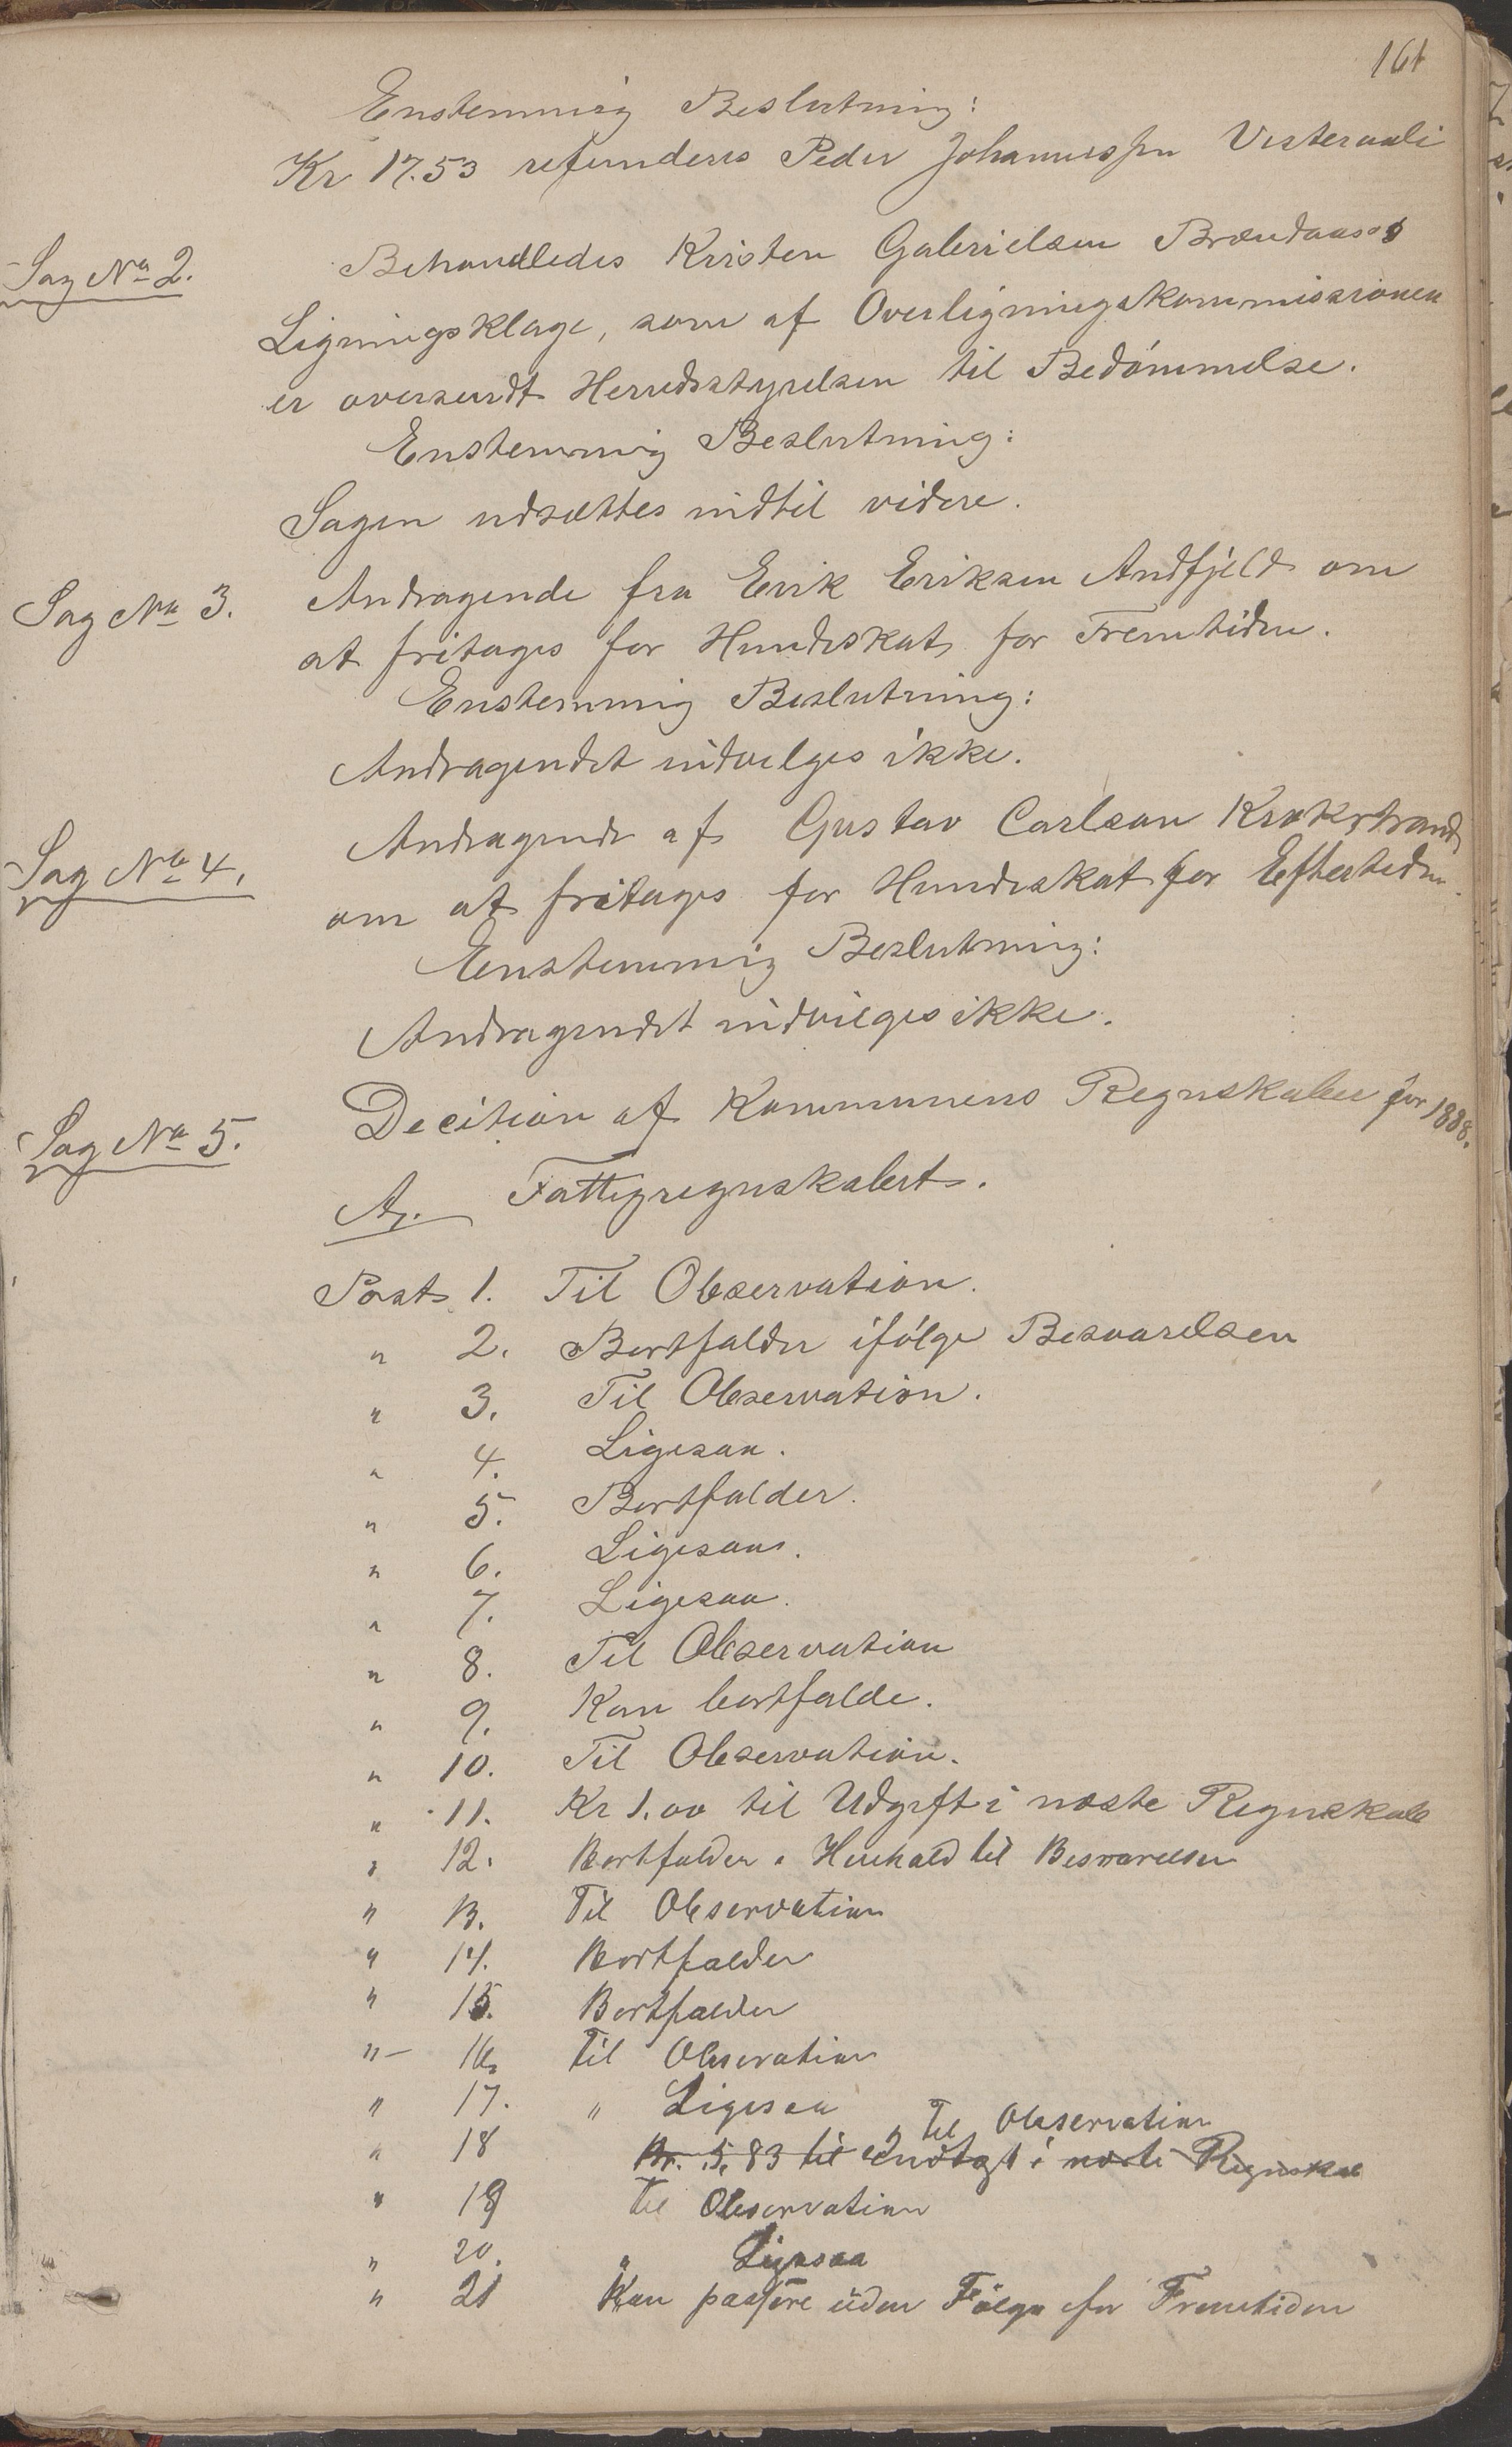 161
Enstemmig Beslutning:
Kr 17.53 refunderes Peder Johannessen Vesteraali
Sag No 2.
Behandledes Kristen Gabrielsen Brændaas's
Ligningsklage, som af Overligningskommissionen
er oversendt Herredsstyrelsen til Bedömmelse.
Enstemmig Beslutning:
Sagen udsættes indtil videre.
Sag No 3.
Andragende fra Erik Eriksen Andfjeld om
at fritages for Hundeskat for Fremtiden.
Enstemmig Beslutning:
Andragendet indvilges ikke.
Sag No 4.
Andragende af Gustav Carlson Krokstrand
om at fritages for Hundeskat for Eftertiden.
Enstemmig Beslutning:
Andragendet indvilges ikke.
Sag No 5.
Decition af Kommunens Regnskaber for 1888.
A. Fattigregnskabet.
Post 1. Til Observation.
" 2. Bortfalder ifølge Besvarelsen
" 3. Til Observation.
" 4. Ligesaa.
" 5. Bortfalder.
" 6. Ligesaa.
" 7. Ligesaa.
" 8. Til Observation
" 9. Kan bortfalde.
" 10. Til Observation.
" 11. Kr 1.00 til Udgift i næste Regnskab
" 12. Bortfalder i Henhold til Besvarelsen
" 13. Til Observation
" 14. Bortfalder
" 15. Bortfalder
" 16. Til Observation
" 17. " Ligesaa
Til Observation
" 18 Kr. 5,83 til Indtægt i næste Regnskab
" 19 Til Observation
" 20. " Ligesaa
" 21 Kan passere uden Følge for Fremtiden